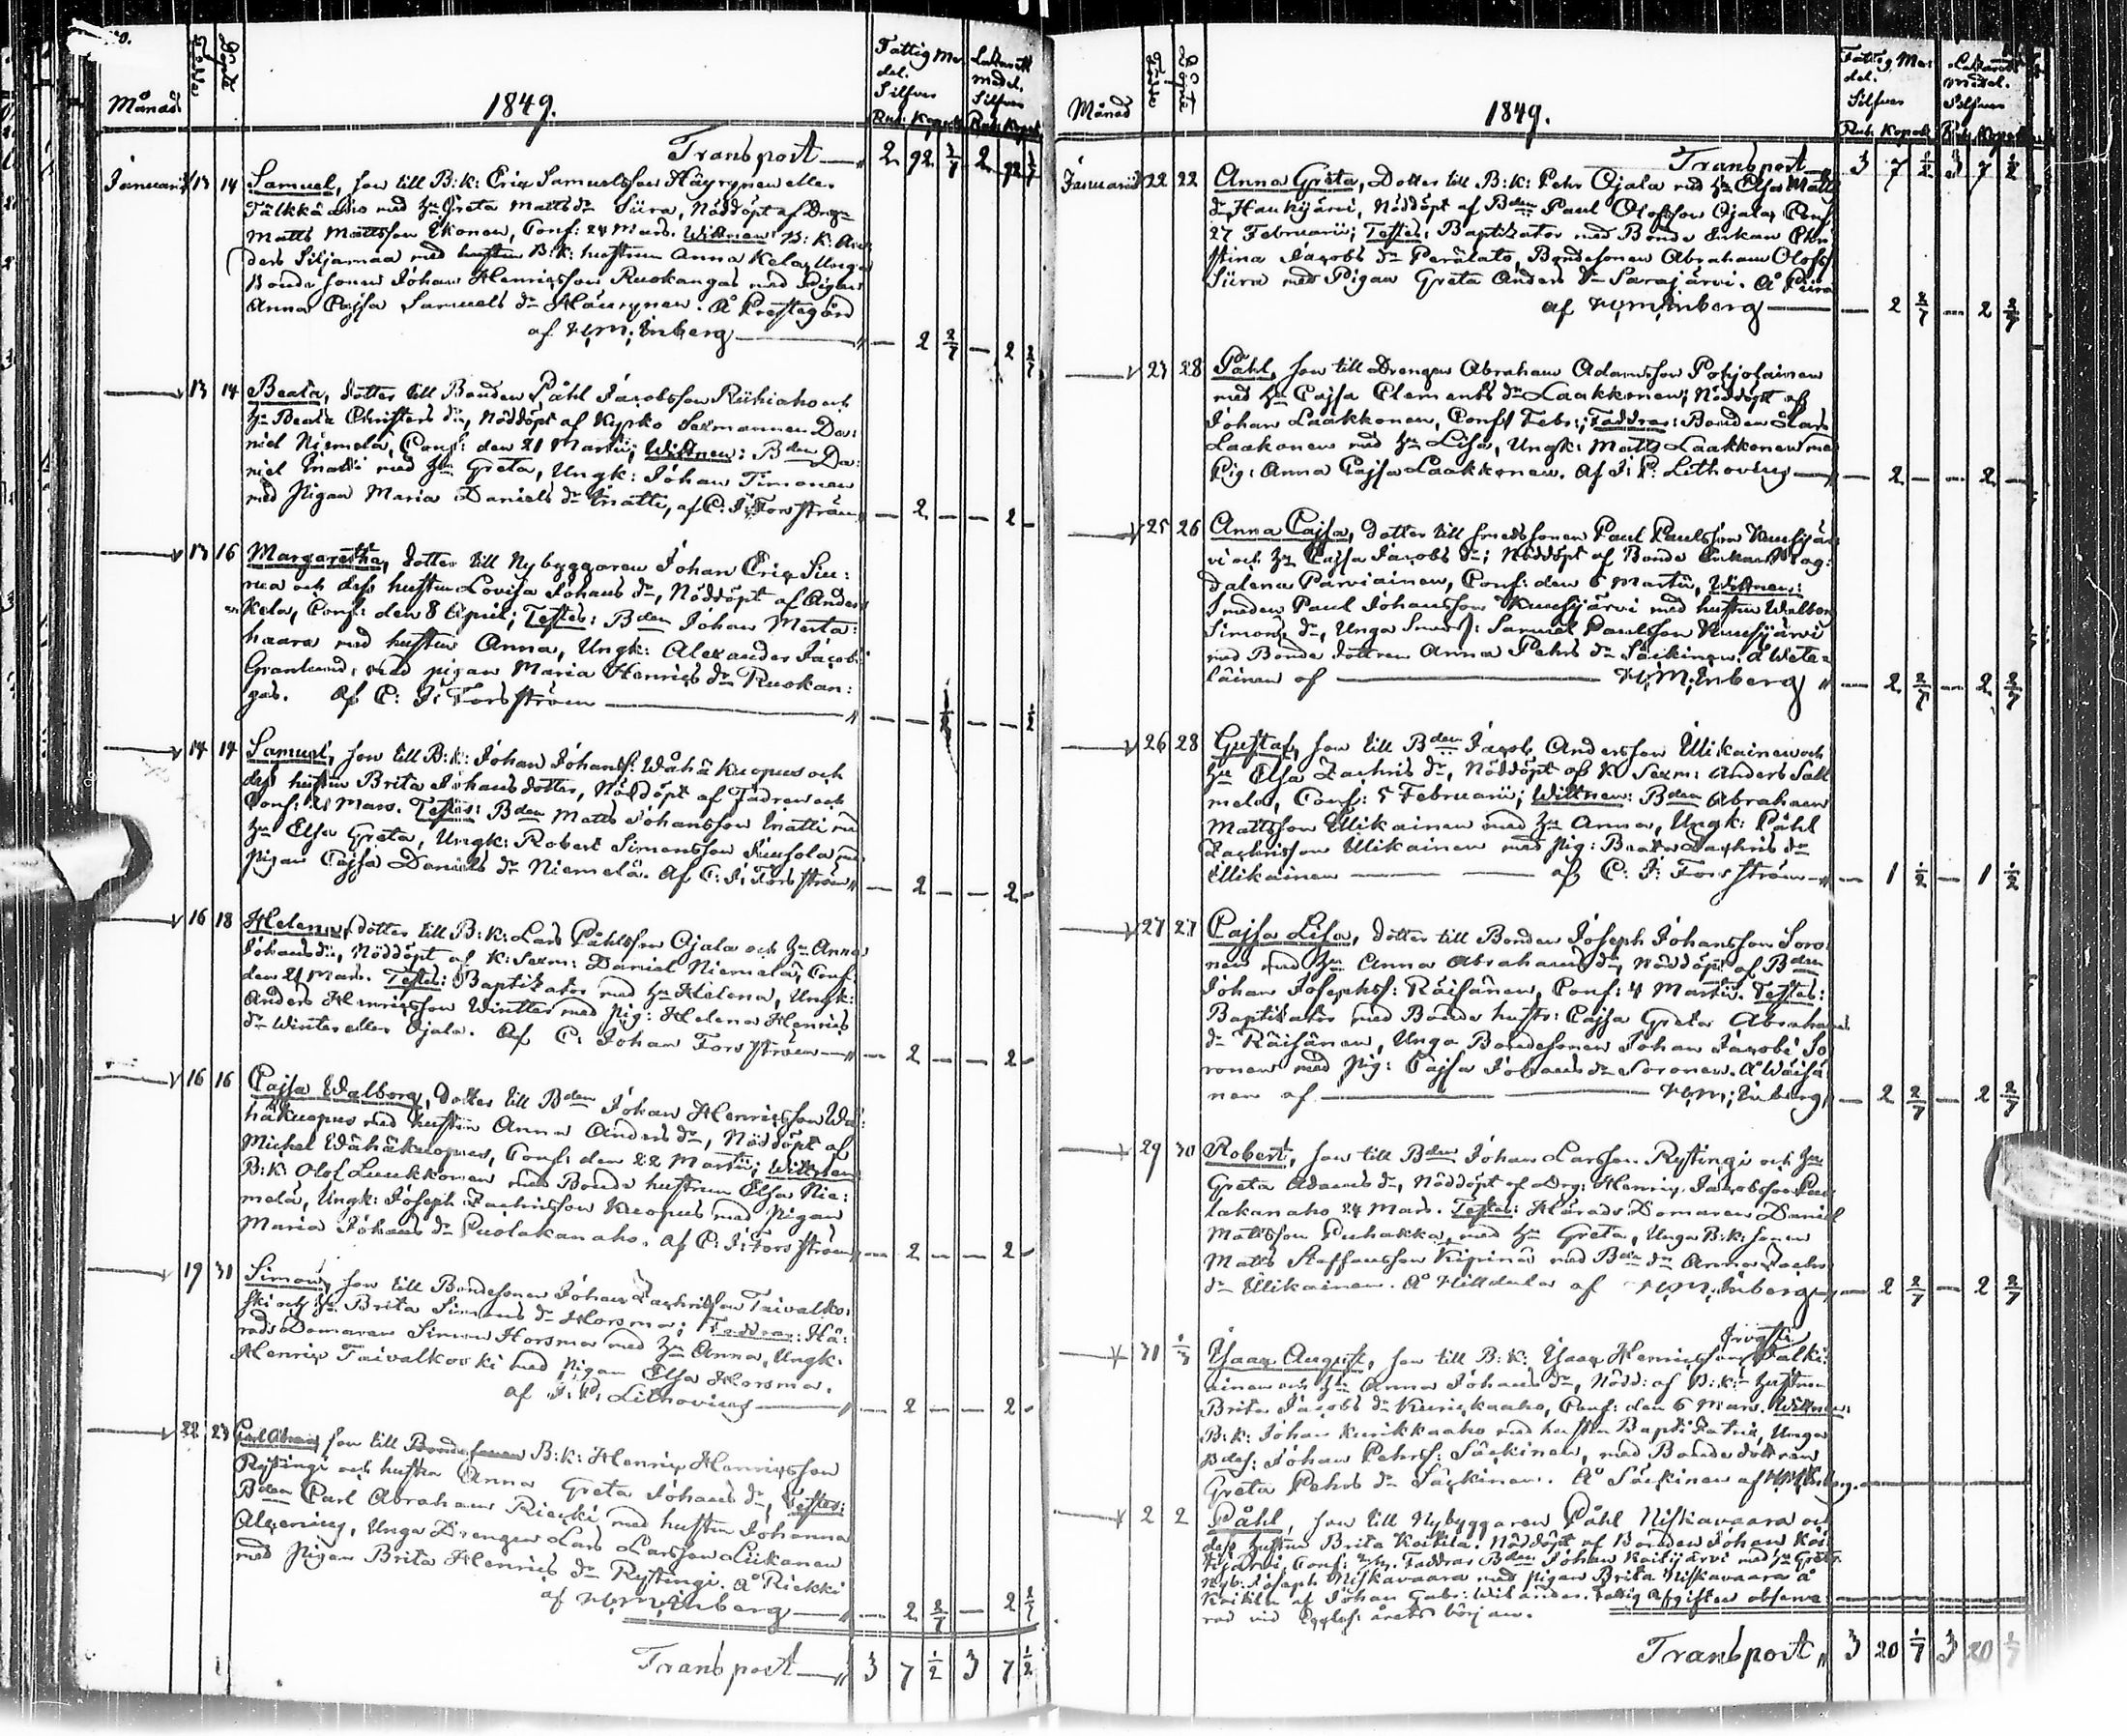 Månad
Födde
Döpte
1849.
Fattig Me-
del.
Silfver
Rub. Kopek
Lazarett
medel.
Silfver
Rub. Kopek
Transport 2 92 2 92
Januarii 13 14 Samuel, son till B:k: Eric Samuelsson Häyrynen eller
Tälkkä dito med Hu Greta Matts dr Siira, Nöddöpt af Dreng
Matts Mattsson Ikonen, Conf: 24 Mars. Wittnen: B:k: An-
ders Siljamaa med B:k: hustrun Anna Kela, Unga
Bonde sonen Johan Henricsson Ruokangas med Pigan
Anna Cajsa Samuels dr Häyrynen. Å Prestegård
af Enberg 2 2/7 2 2/7
13 14 Beata, dotter till Bonden Påhl Jacobsson Riihiaho och
Hu Beata Christers dr, Nöddöpt af Kyrko Sexmannen Da-
niel Niemelä, Conf: den 21 Martii; Wittnen: Bden Da-
niel Matti med Hu Greta, Ungk: Johan Timonen
med Pigan Maria Daniels dr Matti, af C: J: Forsström 2 2
13 16 Margaretha, dotter till Nybyggaren Johan Eric Siu-
rua och dess hustru Lovisa Johans dr, Nöddöpt af Anders
Kela, Conf: den 8 April; Testes: Bden Johan Merta-
haara med hustru Anna, Ungk: Alexander Jacobs
Granlund, med pigan Maria Henrics dr Ruokan-
gas. Af C: J: Forsström
14 14 Samuel, son till B:k: Johan Johans: Wähäkuopus och
dess hustru Brita Johans dotter, Nöddöpt af Fadren och
Conf: 21 Mars. Testes: Bden Matts Johansson Matti med
Hu Elsa Greta, Ungk: Robert Simonsson Juusola med
Pigan Cajsa Daniels dr Niemelä. Af C: J: Forsström 2 2
16 18 Helena, dotter till B:k: Lars Påhlsson Ojala och Hu Anna
Johans dr, Nöddöpt af K: Sexm: Daniel Niemelä, Conf:
den 21 Mars. Testes: Baptizator med Hu Helena, Ungk:
Anders Henricsson Winter med Pig: Helena Henrics
dr Winter eller Ojala. Af C: Johan Forsström 2 2
16 16 Cajsa Walborg, dotter till Bden Johan Henricsson Wä-
häkuopus med hustru Anna Anders dr, Nöddöpt af
Michel Wähäkuopus, Conf: den 22 Martii; Wittnen
B:k: Olof Luukkonen med Bonde hustrun Elsa Nie-
melä, Ungk: Joseph Zachrisson Kuopus med Pigan
Maria Johans dr Puolakanaho. Af C: J: Forsström 2 2
19 31 Simon, son till Bondesonen Johan Zachrisson Taivalko-
ski och Hu Brita Simons dr Horsma; Faddrar: Hä-
rads Domaren Simon Horsma med Hu Anna, Ungk:
Henric Taivalkoski med pigan Elsa Horsma.
af J: P: Lithovius 2 2
22 23 son till B:k: Henric Henricsson
Rystingi och hustru Anna Greta Johans dr, Testes:
Bden Carl Abraham Riecki med hustru Johanna
Alcenius, Unga Drengen Lars Larsson Liikanen
med Pigan Brita Henrics dr Rystingi. Å Riekki
af Enberg 2 2/7 2 2/7
Transport 3 7 1/2 3 7 1/2
Månad
Födde
Döpte
1849.
Fattig Me-
del.
Silfver
Rub. Kopek
Lazarett
medel.
Silfver
Rub. Kopek
Transport 3 7 1/2 3 7 1/2
Januarii 22 22 Anna Greta, Dotter till B:k: Pehr Ojala med Hu Elsa Matts
dr Haukijärvi, Nöddöpt af Bden Paul Olofsson Ojala, Conf:
27 Februarii; Testes: Baptizator med Bonde Enkan Chri-
stina Jacobs dr Perälato, Bondesonen Abraham Olofss
Siira med Pigan Greta Anders dr Sarajärvi. Å Siira
af Enberg 2 2/7 2 2/7
27 28 Påhl, son till Drengen Abraham Adamsson Pohjolainen
med Hu Cajsa Clements dr Laakkonen; Nöddöpt af
Johan Laakkonen, Conf: Febr:; Faddrar: Bonden Lars
Laakonen med Hu Lisa, Ungk: Matts Laakkonen med
Pig: Anna Cajsa Laakkonen. Af J: P: Lithovius 2 2
25 26 Anna Cajsa, dotter till Smedssonen Paul Paulsson Kuusijär-
vi och Hu Cajsa Jacobs dr; Nöddöpt af Bonde Enkan Mag-
dalena Parviainen, Conf: den 6 Martii, Wittnen:
Smeden Paul Johansson Kuusijärvi med hustru Walborg
Simons dr, Unga Smeds: Samuel Paulsson Kuusijärvi
med Bonde dottren Anna Pehrs dr Säckinen. Å Wete-
läinen af Enberg 2 2/7 2 2/7
26 28 Gustaf, son till Bden Jacob Andersson Illikainen och
Hu Elsa Zachris dr, Nöddöpt af K: Sexm: Anders Sall-
mela, Conf: 5 Februarii; Wittnen: Bden Abraham
Mattsson Illikainen med Hu Anna, Ungk: Påhl
Zachrisson Illikainen med Pig: Beata Zachris dr
Illikainen af C: J: Forsström 1 1/2 1 1/2
27 27 Cajsa Lisa, dotter till Bonden Joseph Johansson Soro-
nen med Hu Anna Abrahams dr, Nöddöpt af Bden
Johan Josephs: Räisänen, Conf: 4 Martii. Testes:
Baptizator med Bonde hustr: Cajsa Greta Abrahams
dr Räisänen, Unga Bondesonen Johan Jacobs: So-
ronen med Pig: Cajsa Johans dr Soronen. Å Wäisä-
nen af Enberg 2 2/7 2 2/7
29 30 Robert, son till Bden Johan Larsson Rystingi och Hu
Greta Adams dr, Nöddöpt af Drg: Henric Jacobsson Puo-
lakanaho 24 Mars. Testes: Härads Domaren Daniel
Mattsson Puhakka, med Hu Greta, Unga B:k: sonen
Matts Staffansson Kipinä med Bde dr Anna Zachr:
dr Illikainen. Å Hilldula af Enberg 2 2/7 2 2/7
31 1/3 Isaac August, son till B:k: Isaac Henricsson Jrvasti Falki-
ainen och Hu Anna Johans dr, Nödd: af B:k: hustrun
Brita Jacobs dr Kurickaaho, Conf: den 6 Mars. Wittnen:
B:k: Johan Kurikkaaho med hustru Baptizatrix, Unga
Bdes: Johan Pehrs: Säckinen, med Bonde dottren
Greta Pehrs dr Säckinen. Å Säckinen af Enberg.
2 2 Påhl, son till Nybyggaren Påhl Niskavaara och
dess hustru Brita Koikila. Nöddöpt af Bonden Johan Koi-
tijärvi, Conf: Faddrar Bden Johan Koitijärvi med Hu Greta
Nyb: Joseph Niskavaara med pigan Brita Niskavaara å
Koikila af Johan Gabr: Wilander. Fattig Afgiften observe-
rad vid årets början.
Transport 3 20 1/7 3 20 1/7